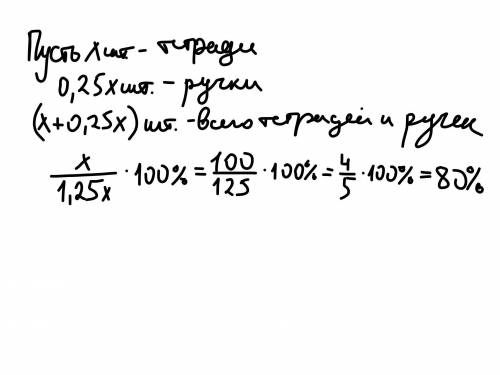 Пусть x шт - тетради
0,25x шт. - ручки
(x+0,25x) шт. - всего тетрадей и ручек
x/1,25x · 100% = 100/125 · 100% = 4/5 · 100% = 80%